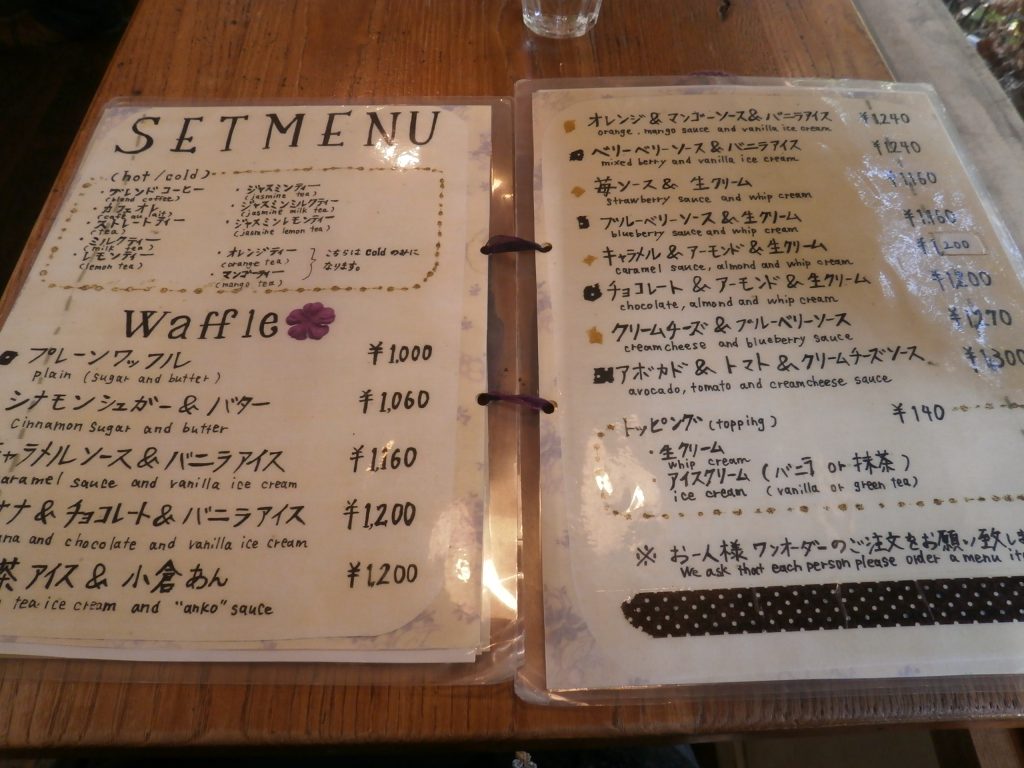 SET MENU
(hot/cold)
・ブレンドコーヒー
(blend coffee)
・カフェオレ
(café au lait)
ストレートティー
(tea)
・ミルクティー
(milk tea)
・レモンティー
(lemon tea)
・ジャスミンティー
(jasmine tea)
・ジャスミンミルクティー
(jasmine milk tea)
・ジャスミンレモンティー
(jasmine lemon tea)
・オレンジティー
(orange tea)
・マンゴーティー
(mango tea)
こちらは cold のみに
なります。
Waffle
プレーンワッフル ¥1,000
plain (sugar and butter)
シナモンシュガー & バター ¥1,060
cinnamon sugar and butter
ャラメルソース & バニラアイス ¥1,160
aramel sauce and vanilla ice cream
ナナ & チョコレート & バニラアイス ¥1,200
ana and chocolate and vanilla ice cream
茶アイス & 小倉あん ¥1,200
tea ice cream and "anko" sauce
オレンジ & マンゴーソース & バニラアイス ¥1240
orange, mango sauce and vanilla ice cream
ベリーベリーソース & バニラアイス ¥1240
mixed berry and vanilla ice cream
苺ソース & 生クリーム ¥1160
strawberry sauce and whip cream
ブルーベリーソース & 生クリーム ¥1160
blueberry sauce and whip cream
キャラメル & アーモンド & 生クリーム ¥1200
caramel sauce, almond and whip cream
チョコレート & アーモンド & 生クリーム ¥1200
chocolate, almond and whip cream
クリームチーズ & ブルーベリーソース ¥1270
creamcheese and blueberry sauce
アボカド & トマト & クリームチーズソース ¥1300
avocado, tomato and creamcheese sauce
トッピング (topping) ¥140
・生クリーム
whip cream
・アイスクリーム (バニラ or 抹茶)
ice cream (vanilla or green tea)
※ お一人様 ワンオーダーのご注文をお願い致しま
We ask that each person please order a menu it